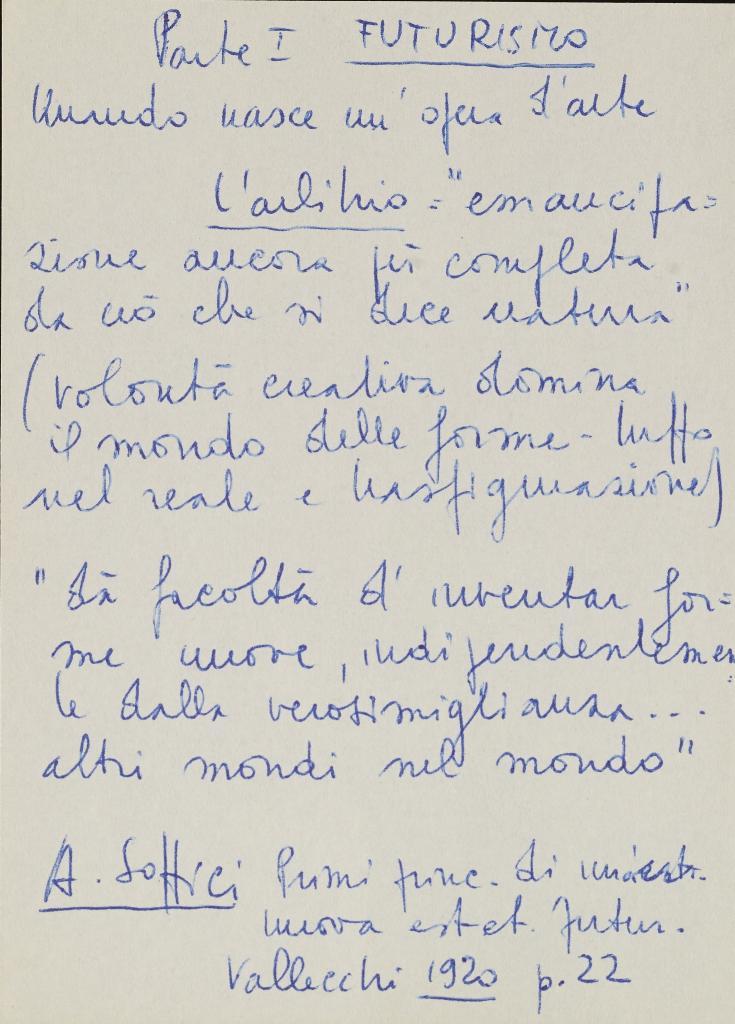 Parte I FUTURISMO
Quando nasce un'opera d'arte
L'arbitrio = "emancipa=
zione ancora più completa
da ciò che si dice natura"
(volontà creativa domina
il mondo delle forme - tuffo
nel reale e trasfigurazione)
"dà facoltà d'inventar for=
me nuove, indipendentemen=
te dalla verosimiglianza...
altri mondi nel mondo"
A. Soffici Primi princ. di
nuova estet. futur.
Vallecchi 1920 p. 22